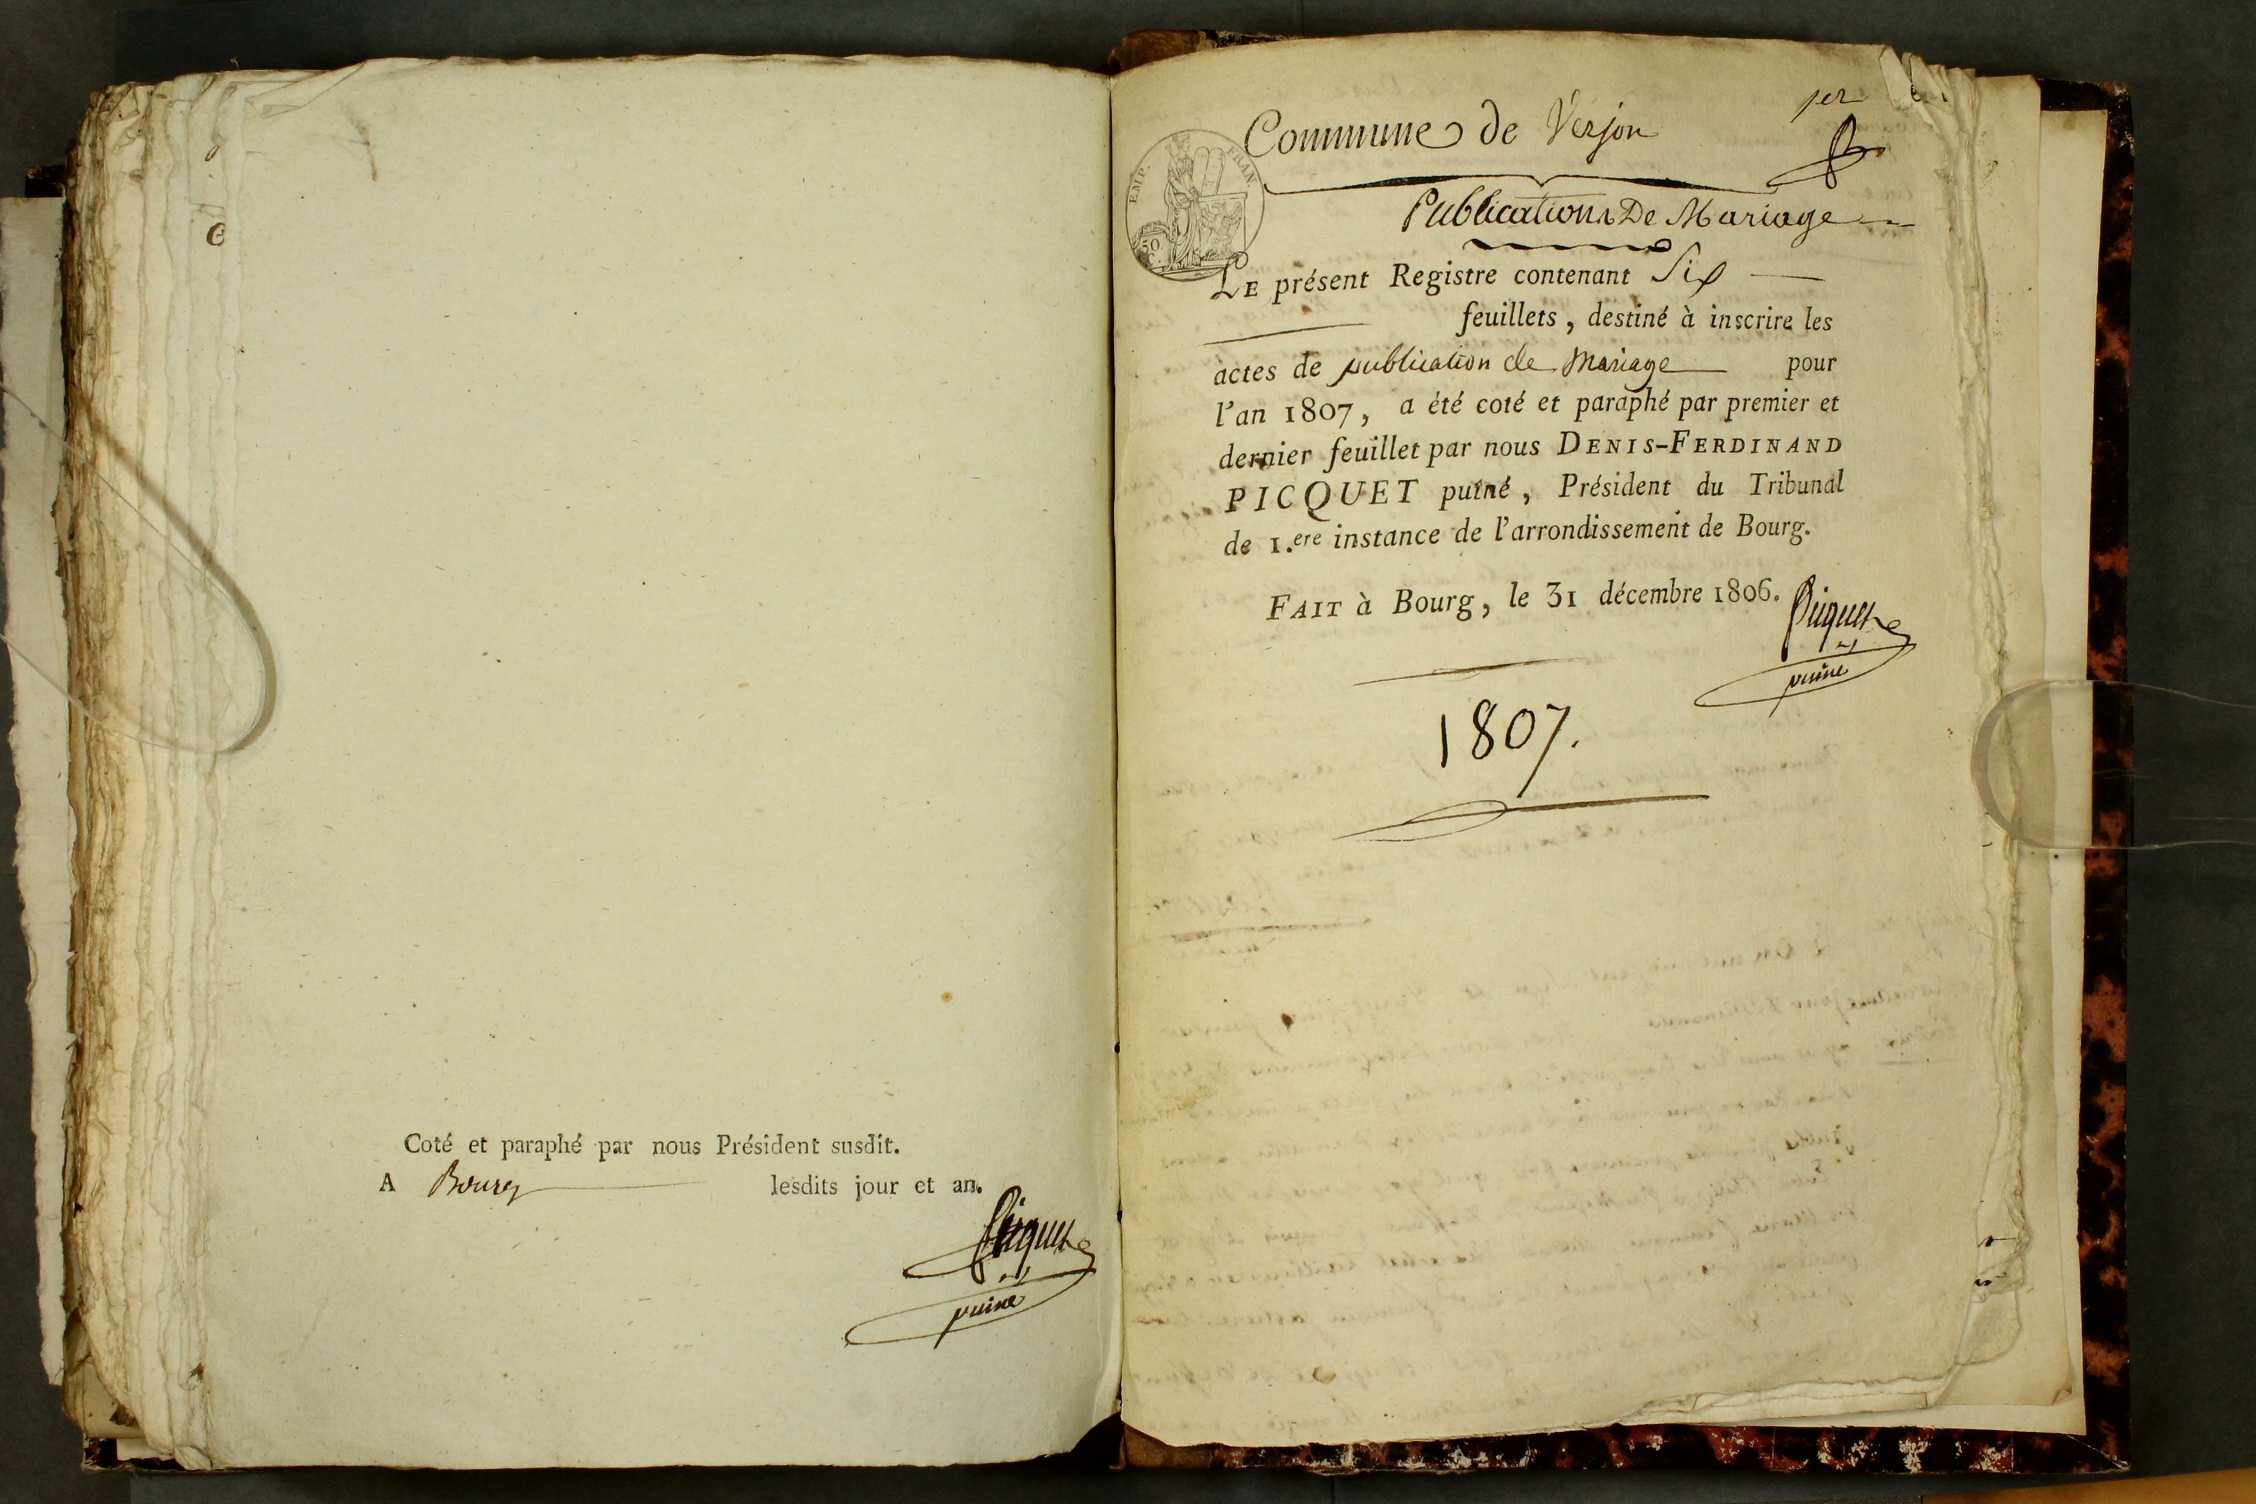 Coté et paraphé par nous Président susdit.
A Bourg lesdits jour et an.
Picquet
puiné
1er
Commune de Verjon
EMP. FRAN.
50
C.
Publications De Mariage
LE présent Registre contenant Six
feuillets, destiné à inscrire les
actes de publication de Mariage pour
l'an 1807, a été coté et paraphé par premier et
dernier feuillet par nous DENIS-FERDINAND
PICQUET puîné, Président du Tribunal
de 1.ere instance de l'arrondissement de Bourg.
FAIT à Bourg, le 31 décembre 1806.
Picquet
puiné
1807.